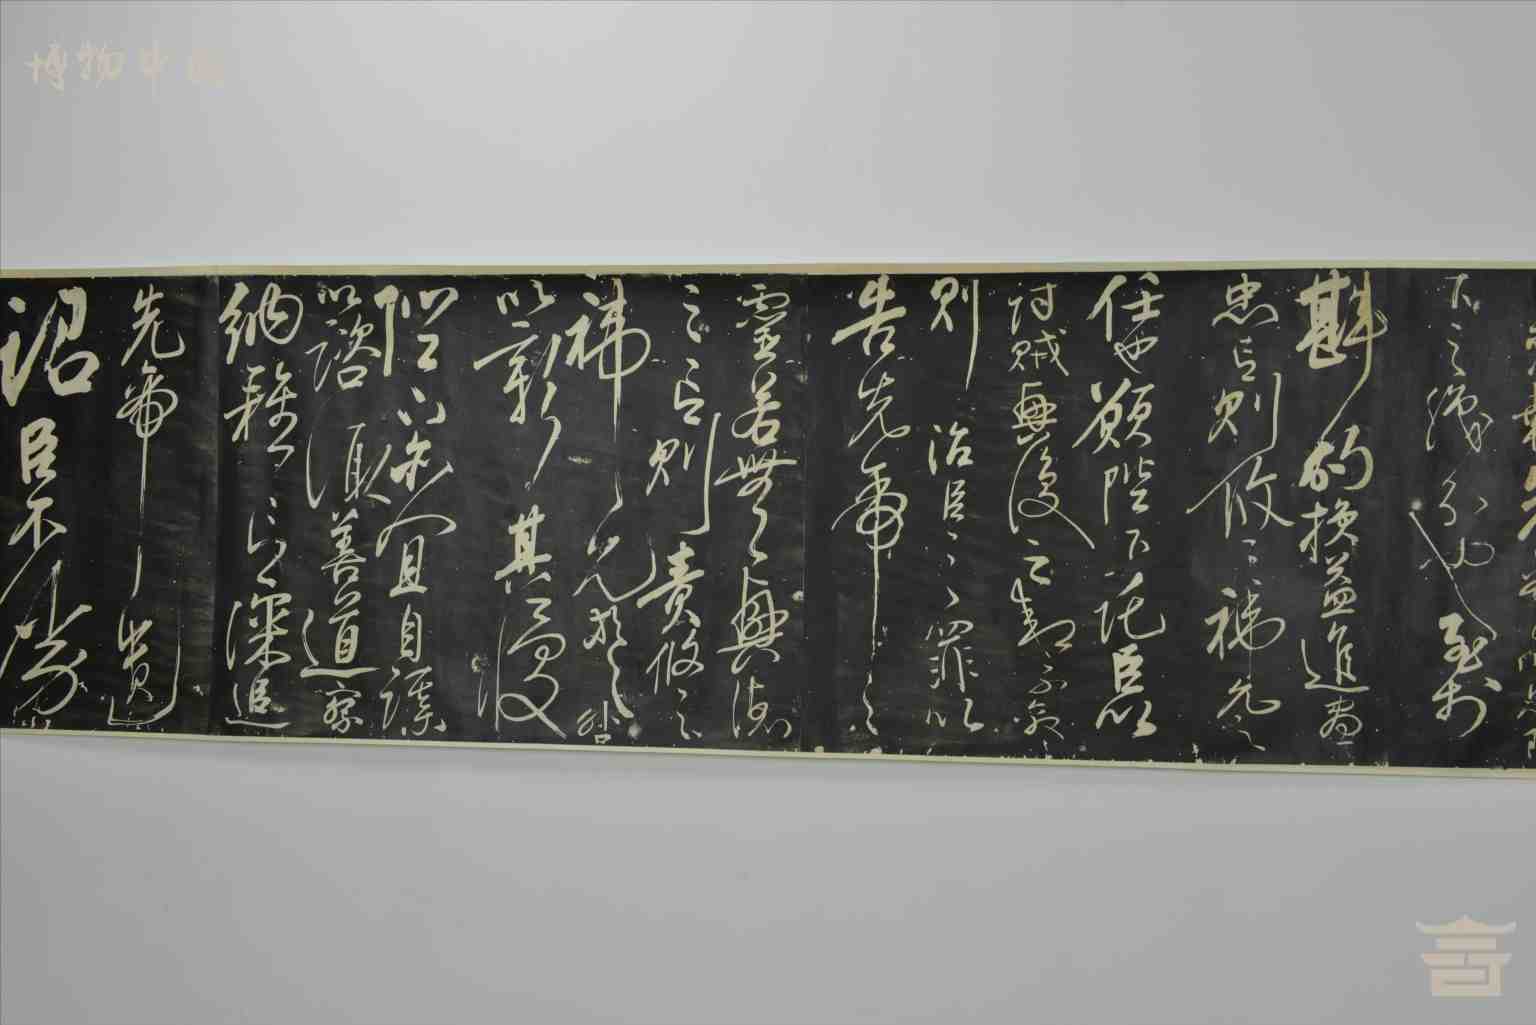 博物中国
下之職分也至於
斟酌損益進盡
忠言則攸之禕允之
任也願陛下託臣以
討賊興復之效不效
則治臣之罪以
告先帝之
靈若無興德
之言則責攸之
禕允等之咎
以彰其慢
陛下亦宜自謀
以諮諏善道察
納雅言深追
先帝遺
詔臣不勝